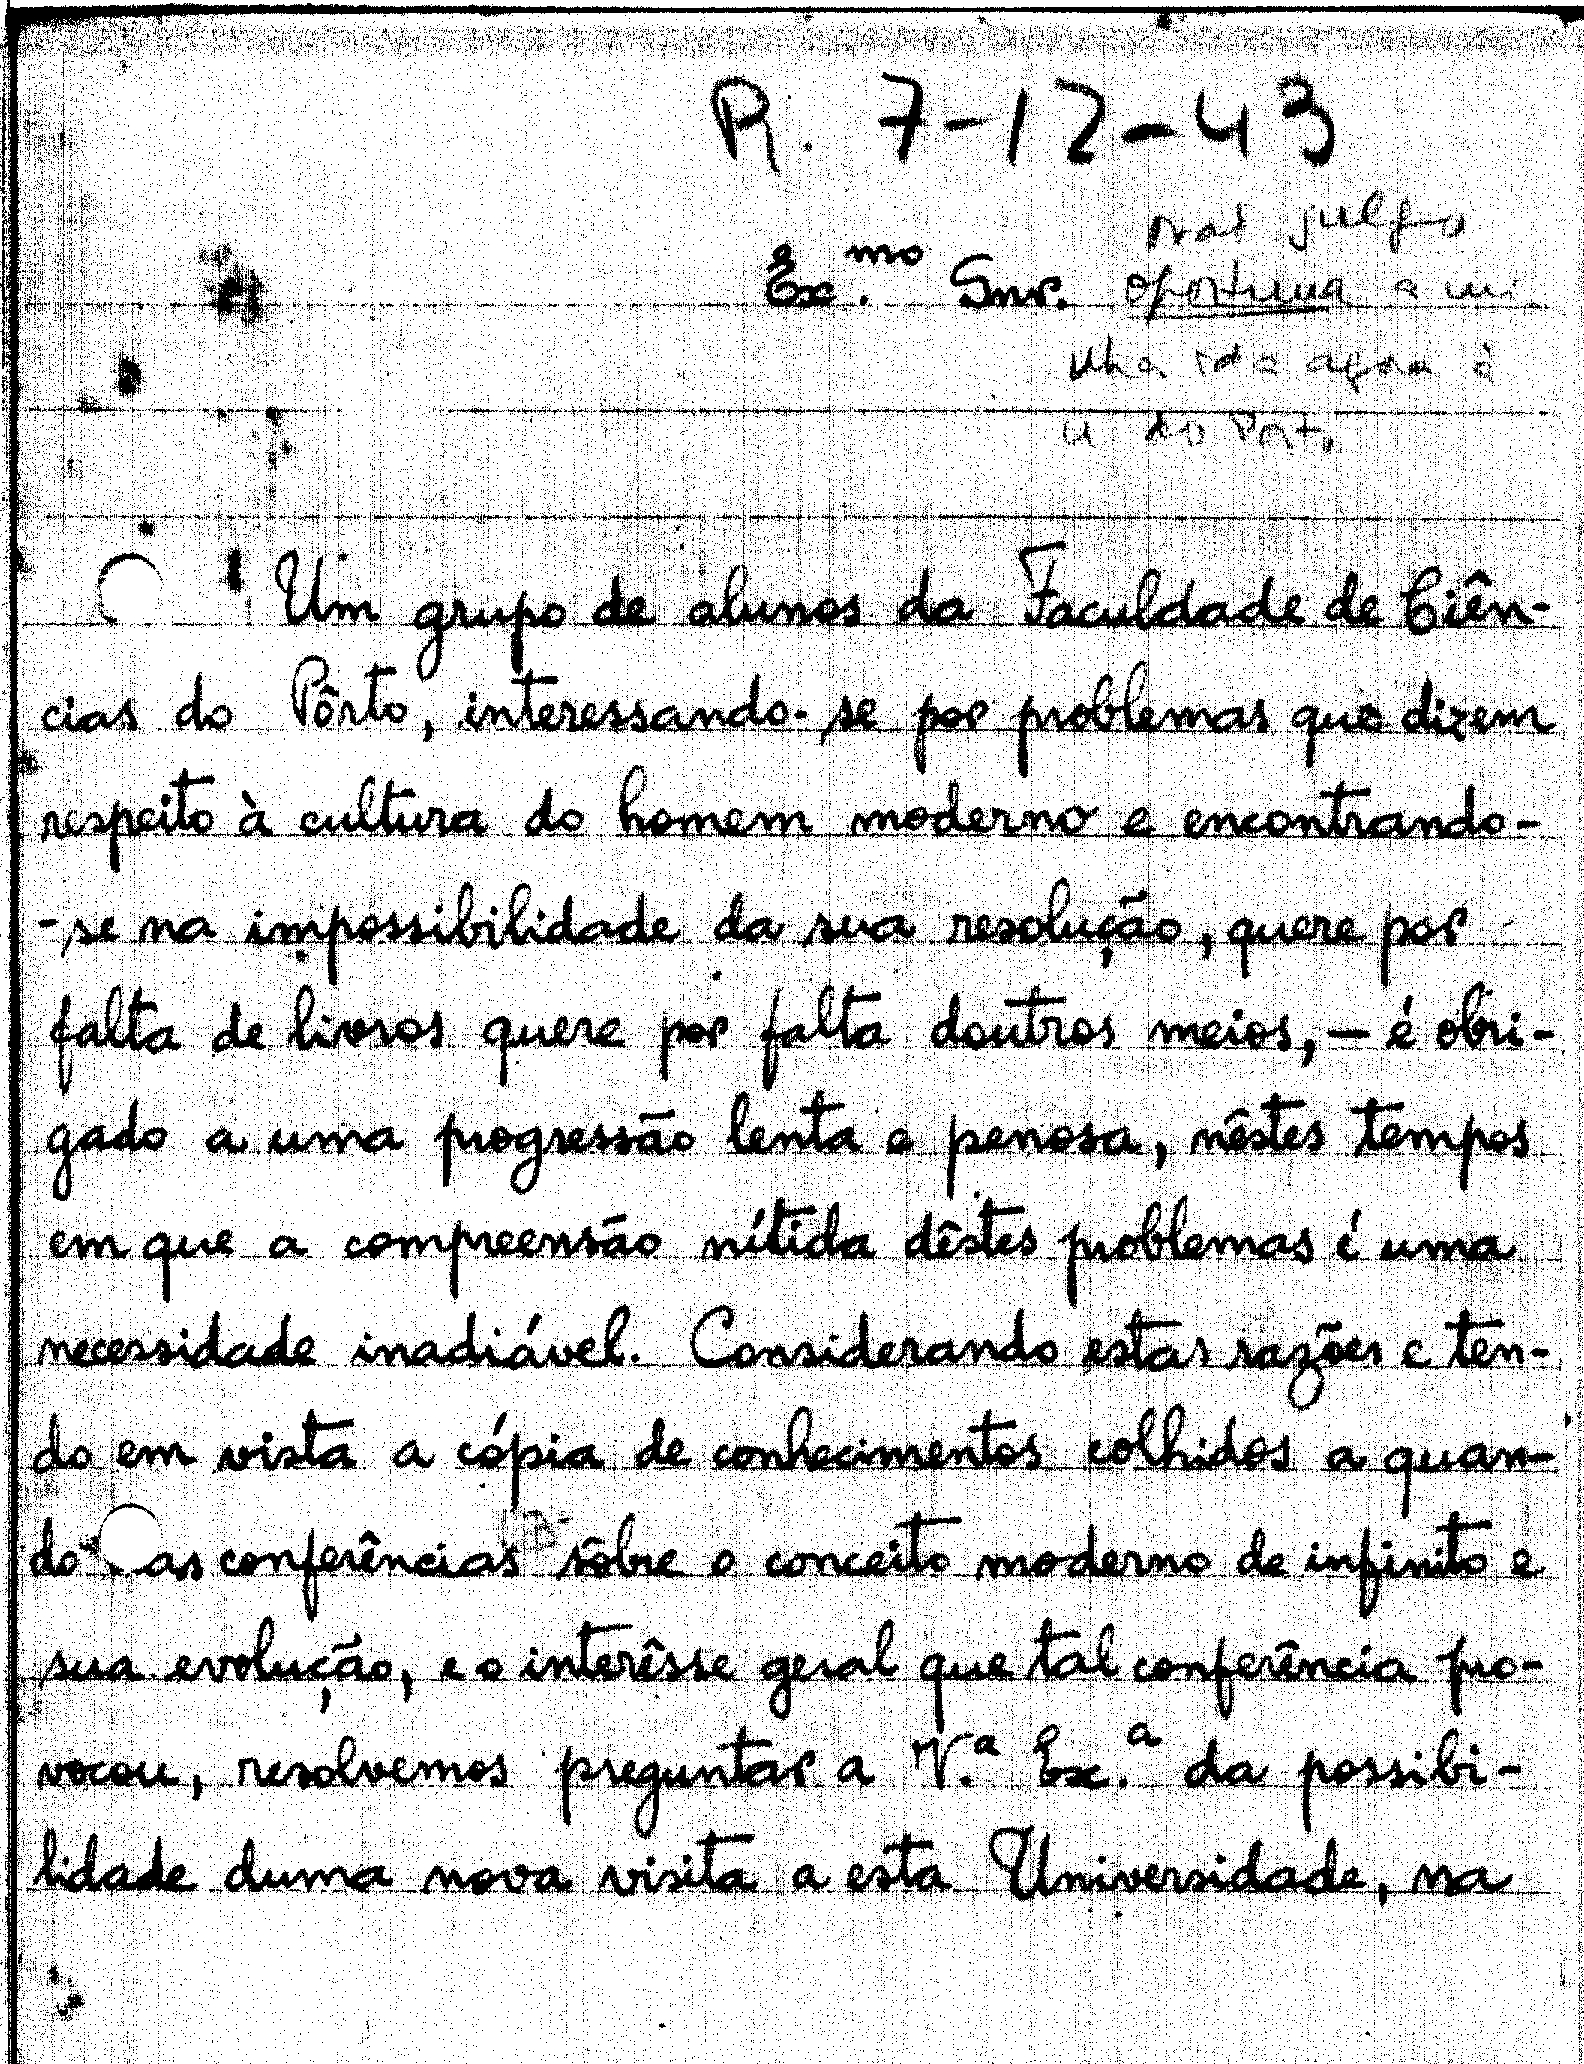 R. 7-12-43
Ex.mo Snr.
não julgo
oportuna a mi-
nha ida agora à
U do Porto
Um grupo de alunos da Faculdade de Ciên-
cias do Pôrto, interessando-se por problemas que dizem
respeito à cultura do homem moderno e encontrando-
-se na impossibilidade da sua resolução, quere por
falta de livros quere por falta doutros meios, — é obri-
gado a uma progressão lenta e penosa, nêstes tempos
em que a compreensão nítida dêstes problemas é uma
necessidade inadiável. Considerando estas razões e ten-
do em vista a cópia de conhecimentos colhidos a quan-
do as conferências sôbre o conceito moderno de infinito e
sua evolução, e o interêsse geral que tal conferência pro-
vocou, resolvemos preguntar a V.a Ex.a da possibi-
lidade duma nova visita a esta Universidade, na